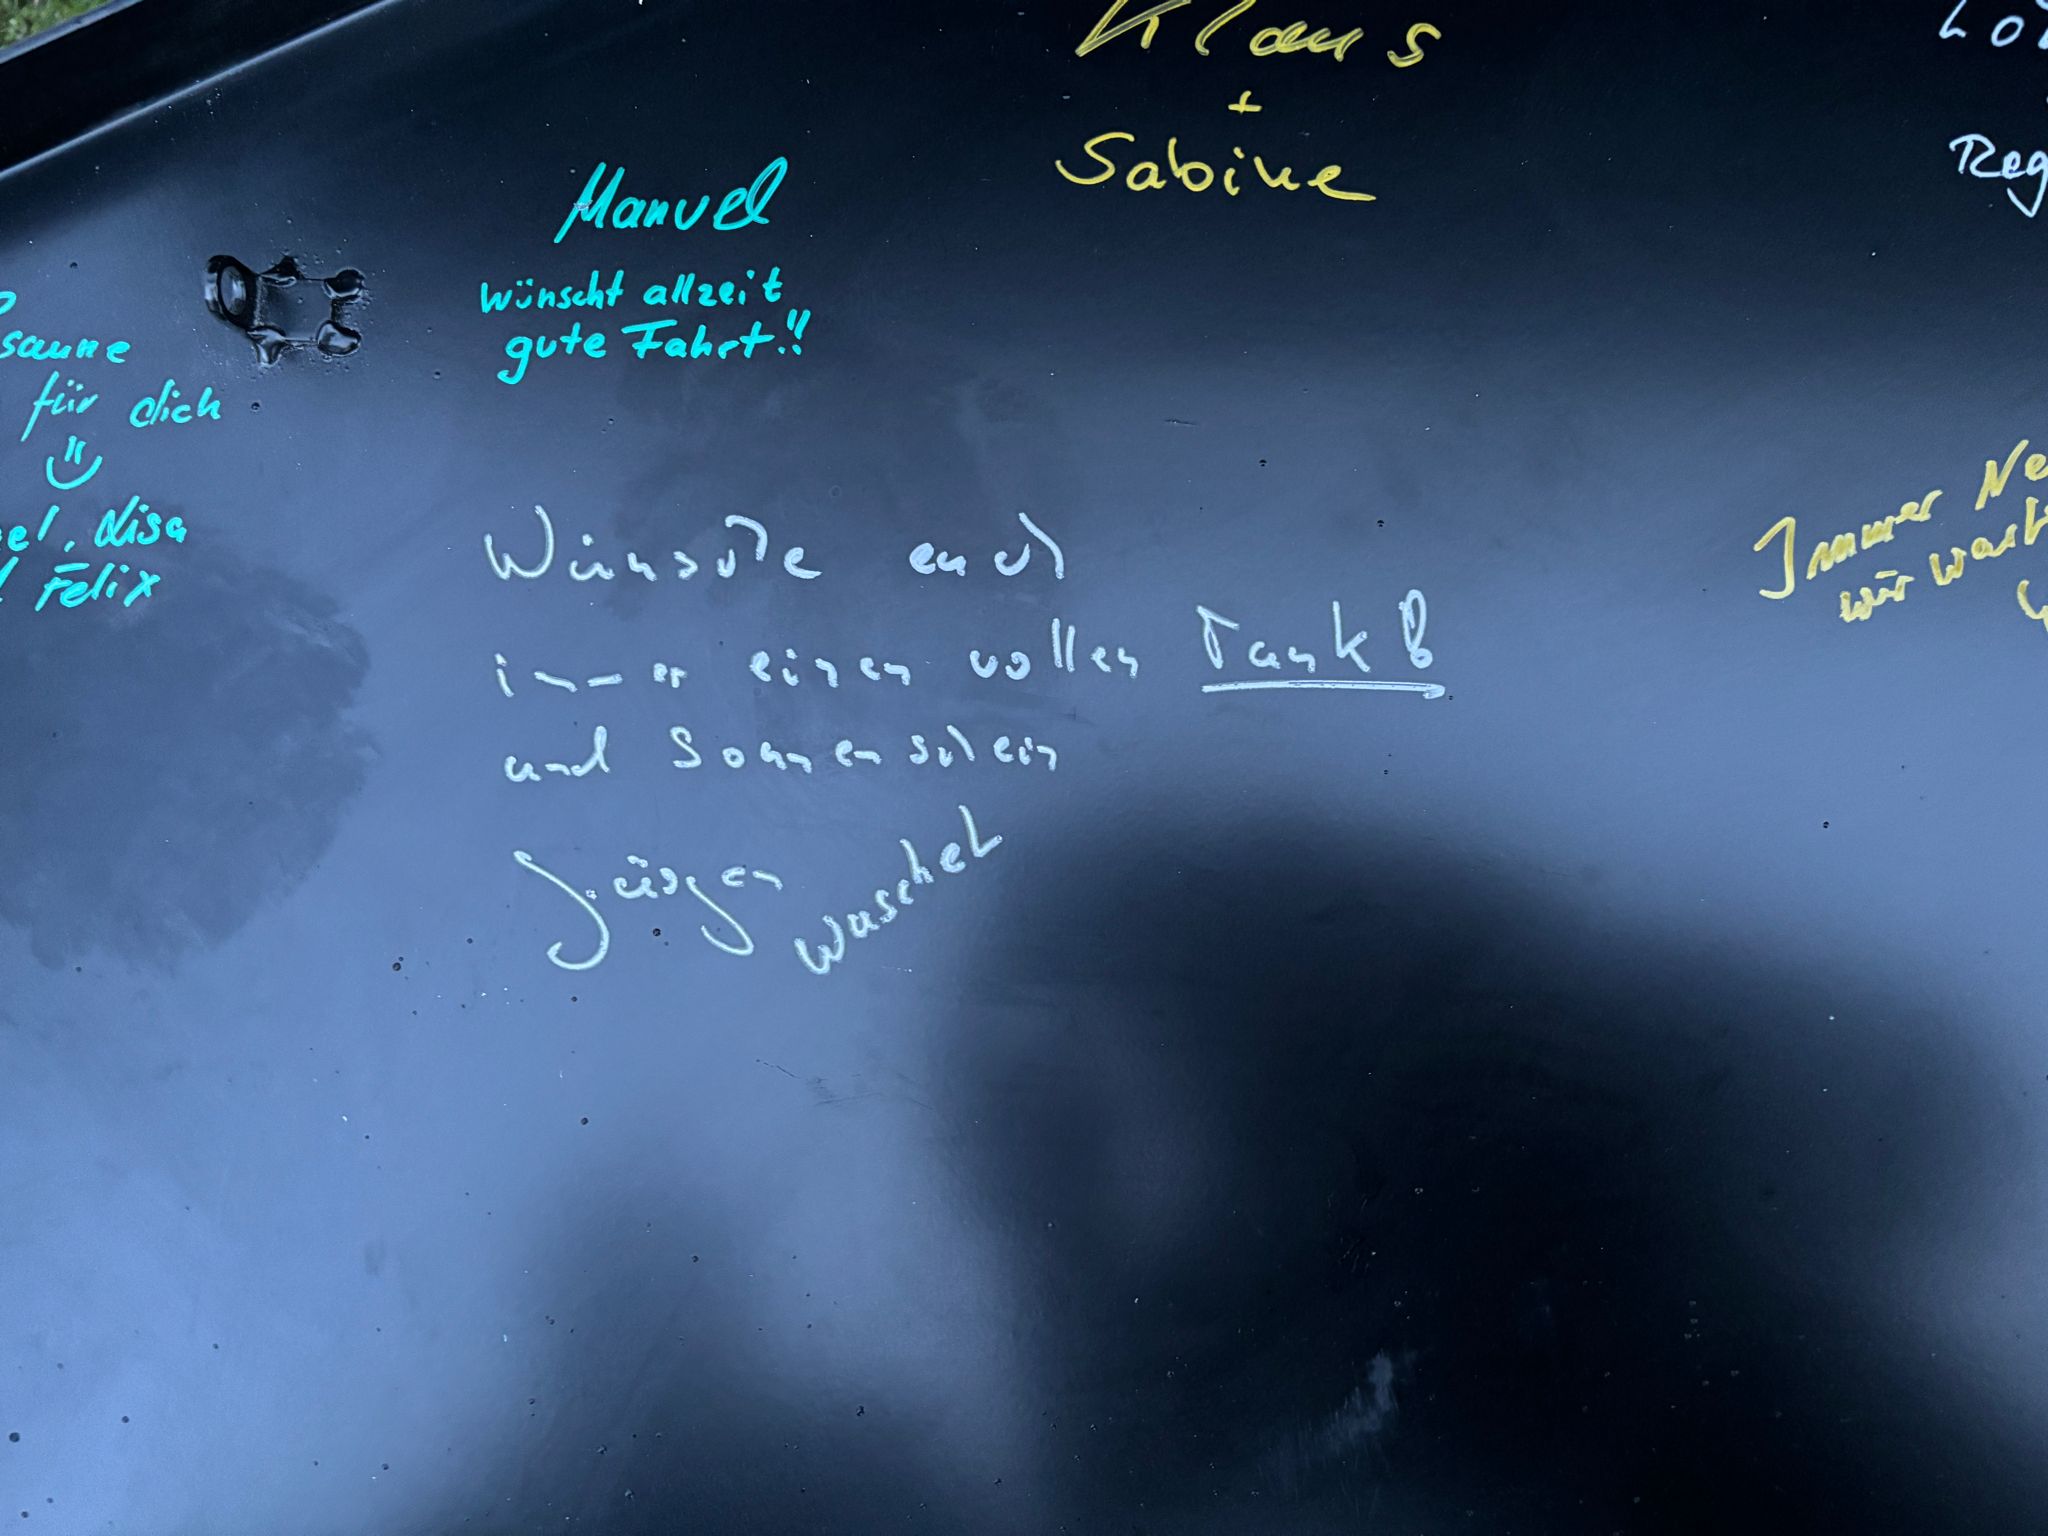 Klaus
+
Sabine
Manuel
wünscht allzeit
gute Fahrt!!
für dich
Lisa
Felix
Wünsche euch
immer einen vollen Tank!
und Sonnenschein
Jürgen
Waschek
Immer
wir